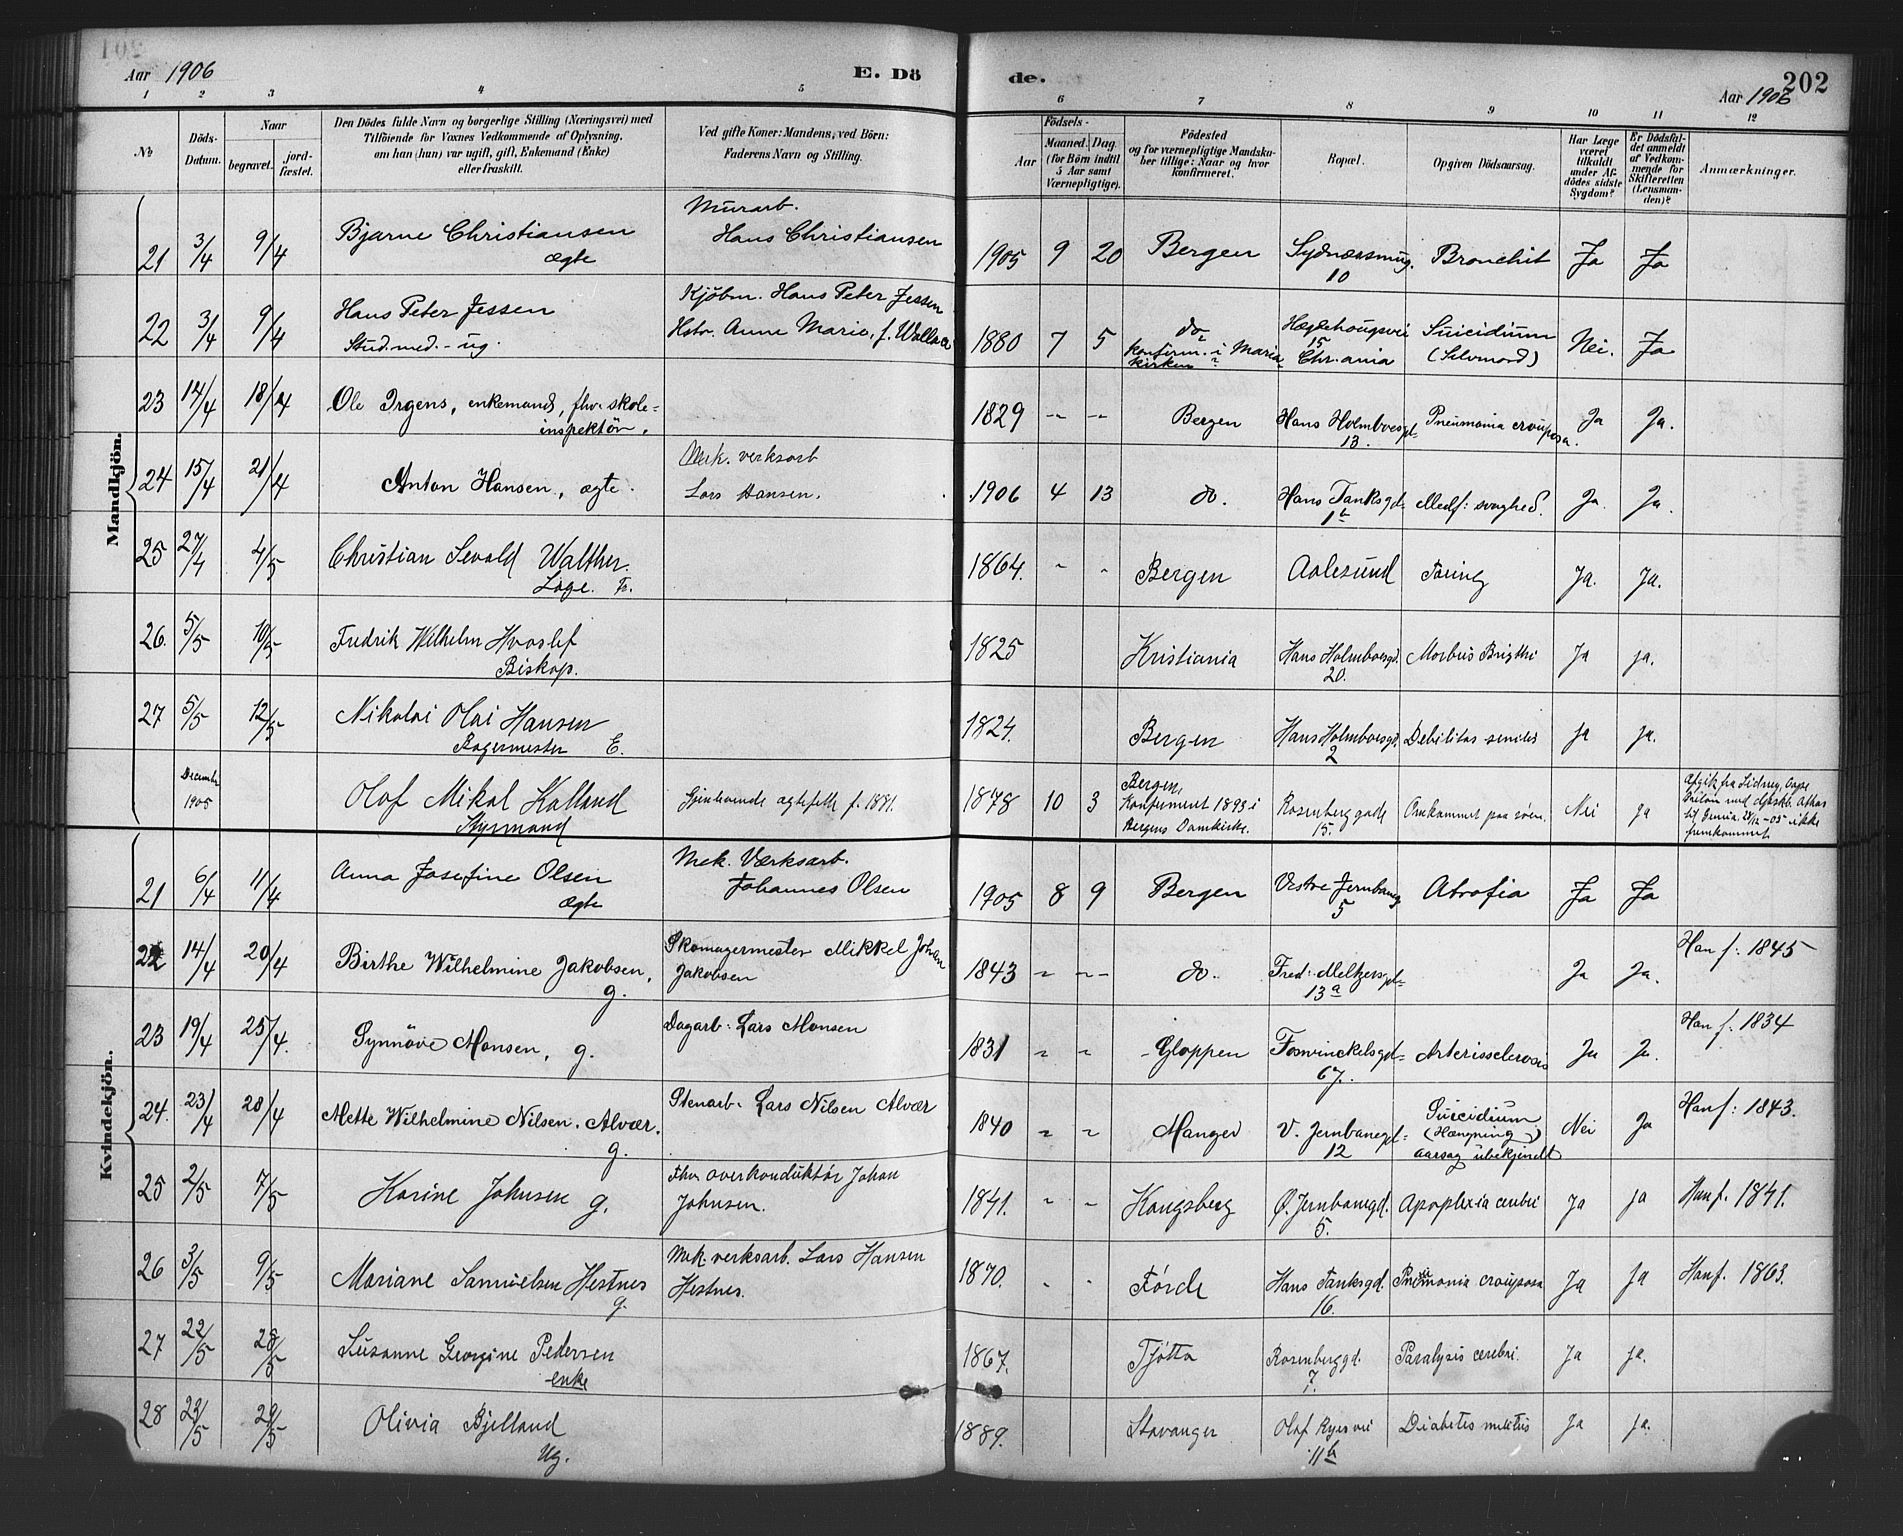 Aar 1906
E. Dö
de.
Aar 1906
202
1 2 3 4 5 6 7 8 9 10 11 12
No
Döds-Datum.
Naar
begravet.
jord-fæstet.
Den Dödes fulde Navn og borgerlige Stilling (Næringsvei) med
Tilföiende for Voxnes Vedkommende af Oplysning,
om han (hun) var ugift, gift, Enkemand (Enke)
eller fraskilt.
Ved gifte Koner: Mandens, ved Börn:
Faderens Navn og Stilling.
Födsels-
Aar
Maaned. Dag.
(for Börn indtil
5 Aar samt
Værnepligtige).
Födested
og for værnepligtige Mandska-
ber tillige: Naar og hvor
konfirmeret.
Bopæl.
Opgiven Dödsaarsag.
Har Læge
været
tilkaldt
under Af-
dödes sidste
Sygdom?
Er Dödsfal-
det anmeldt
af Vedkom-
mende for
Skifteretten
(Lensman-
den)?
Anmærkninger.
Mandkjön.
21 3/4 9/4 Bjarne Christiansen ægte Murarb. Hans Christiansen 1905 9 20 Bergen Sydnæssmug. 10 Bronchit Ja Ja
22 3/4 9/4 Hans Peter Jessen Stud. med. - ug. Kjöbm. Hans Peter Jessen Hstr. Anne Marie, f. Wallace 1880 7 5 do konfirm. i Maria-kirken Hægdehougsvei 15 Chr.ania Suicidium (Selvmord) Nei. Ja
23 14/4 18/4 Ole Irgens, enkemand, fhv. skole-inspektör. 1829 -- -- Bergen Hans Holmboesgd- 13. Pneumonia crouposa. Ja Ja.
24 15/4 21/4 Anton Hansen, ægte. Mek. verksarb Lars Hansen. 1906 4 13 do. Hans Tanksgd- 1b Medf: svaghed. Ja. Ja.
25 27/4 4/5 Christian Sevald Walther. Læge. 1864. - - Bergen Aalesund Tæring Ja. Ja.
26. 5/5 10/5 Fredrik Wilhelm Hvoslef Biskop. 1825 Kristiania Hans Holmboesgd. 20. Morbus Brigthi Ja ja.
27 5/5 12/5 Nikolai Olai Hansen Bagermester E. 1824. Bergen Hans Holmboesgd. 2 Debilitas senilis ja ja.
December 1905 Olof Mikal Kalland Styrmand 1878 10 3 Bergen, Konfirmeret 1893 i Bergens Domkirke. Rosenberggade 15. Omkommet paa söen. Nei ja
Kvindekjön.
21 6/4 11/4 Anna Josefine Olsen ægte Mek. Værksarb. Johannes Olsen 1905 8 9 Bergen Vestre Jernbaneg 5 Atrofia Ja Ja
22 14/4 20/4 Birthe Wilhelmine Jakobsen, g. Skomagermester Mikkel Johan Jakobsen 1843 - -- do. Fred: Meltzersgd- 13a Ja Ja. Han f: 1845
23 19/4 25/4. Synnöve Monsen, g. Dagarb: Lars Monsen 1831 - - Gloppen Fosvinckelsgd- 67. Arterissclerosis Ja Ja. Han f: 1834
24. 23/4 28/4 Mette Wilhelmine Nilsen Alvær. g. Stenarb: Lars Nilsen Alvær 1840 - - Manger V. Jernbanegd- 12 Suicidium (Hængning) aarsag ubekjendt Nei Ja Han f: 1843.
25 2/5 7/5 Karine Johnsen g. Fhv overkonduktör Johan Johnsen. 1841. - - Kongsberg Ø. Jernbanegd. 5. Apoplexia cerebri Ja ja Han f. 1841.
26 3/5 9/5 Mariane Samuelsen Hestnes g. Mek. verksarb. Lars Hansen Hestnes. 1870. - - Förde Hans Tanksgd. 16. Pneumonia crouposa Ja ja Han f. 1863.
27 22/5 28/5 Susanne Georgine Pedersen enke 1867. Tjötta Rosenberggd. 7. Paralysis cerebri. Ja ja.
28 23/5 29/5 Olivia Bjelland Ug. 1889. Stavanger Olaf Ryes vei 11b Diabetes melitus Ja ja.